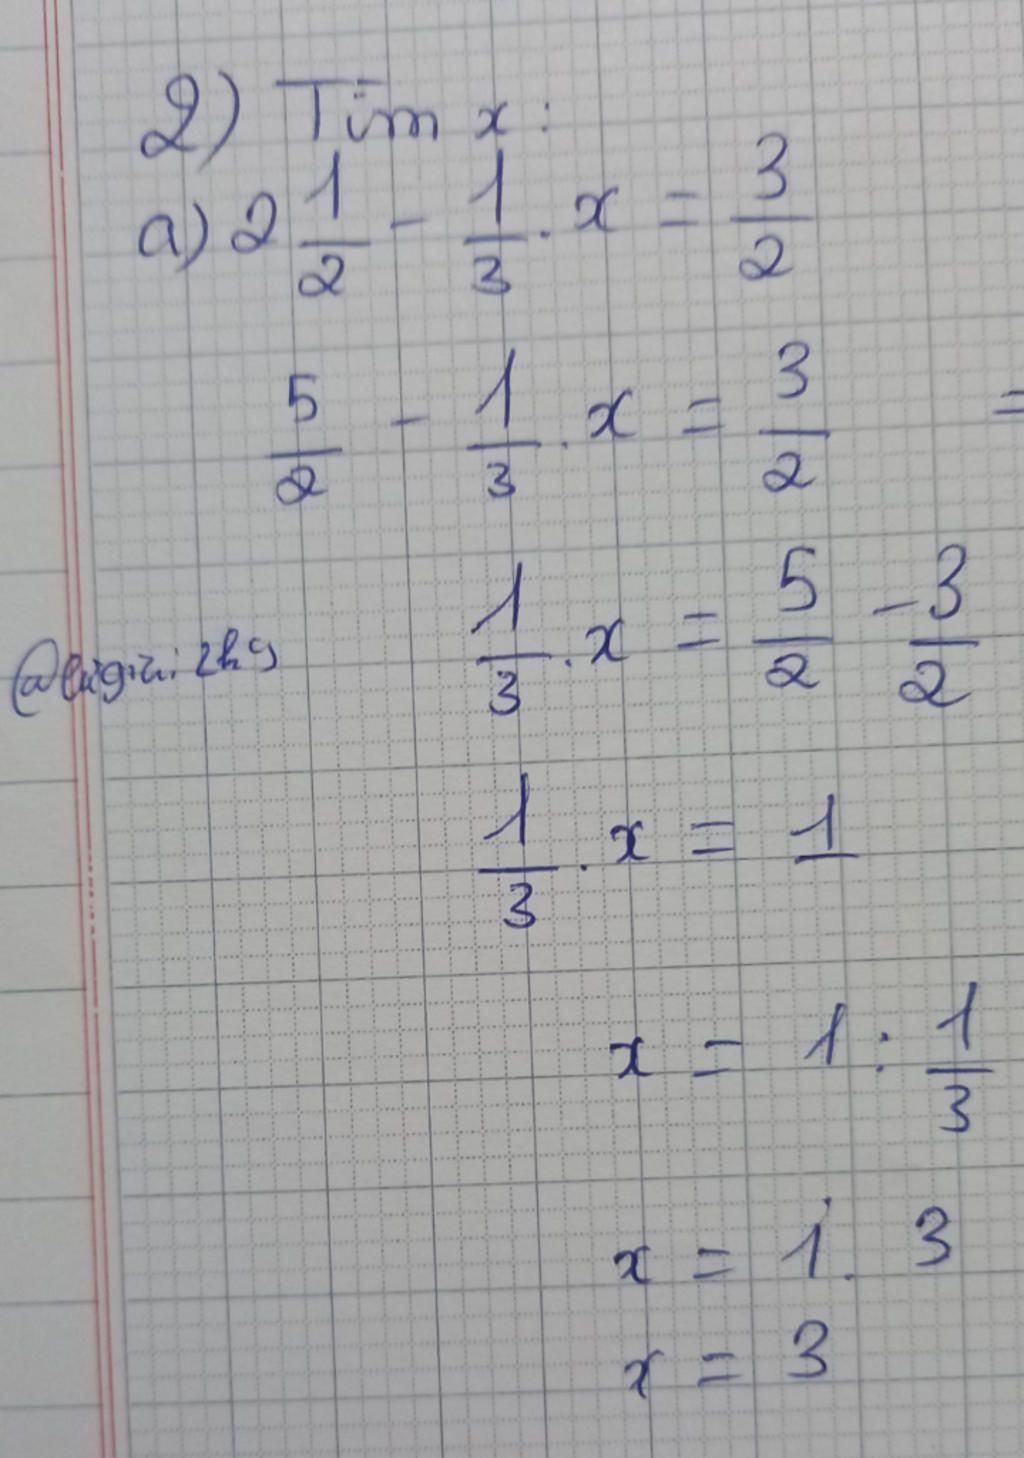 2) Tìm x:
a) 2 1/2 - 1/3 . x = 3/2
5/2 - 1/3 . x = 3/2 =
1/3 . x = 5/2 - 3/2
1/3 . x = 1
x = 1 : 1/3
x = 1 . 3
x = 3